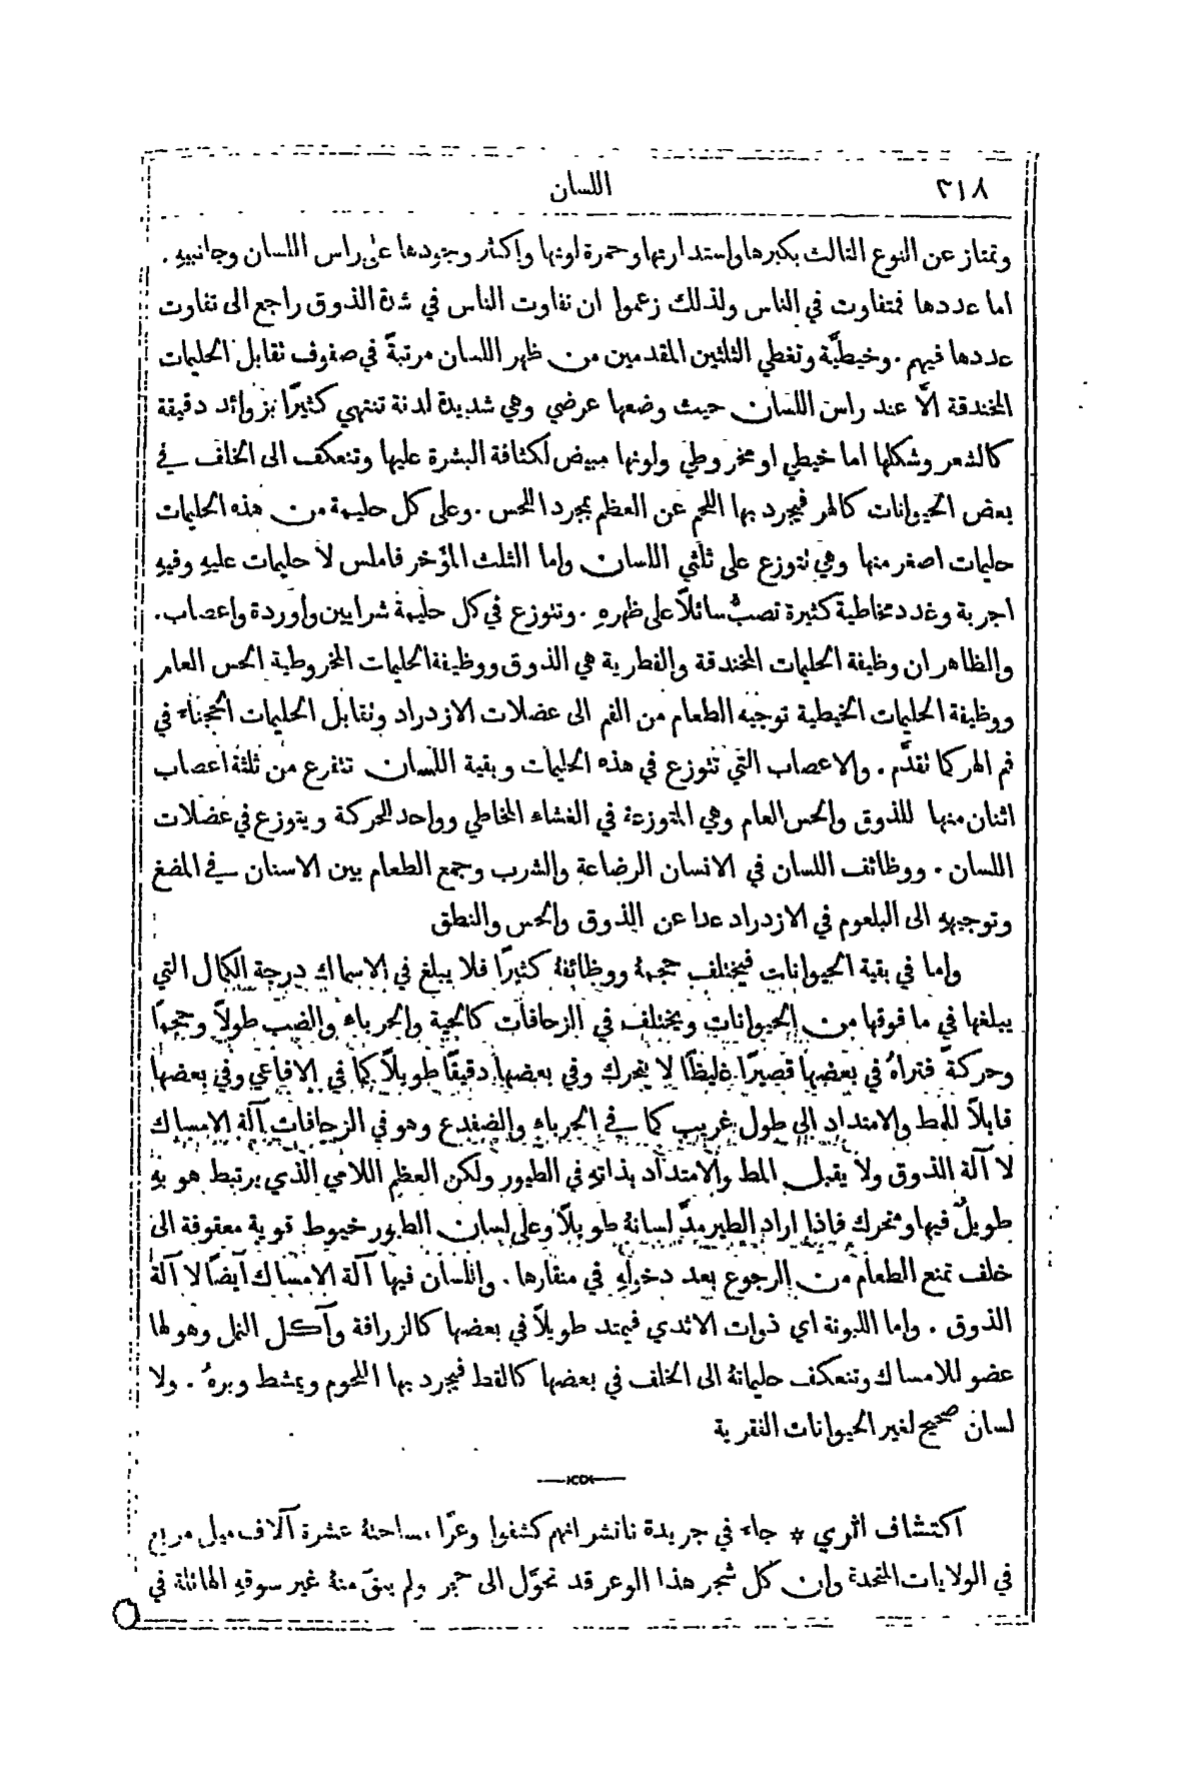 ٢١٨
اللسان
وتمتاز عن النوع الثالث بكبرها واستدارتها وحمرة لونها واكثر وجودها على راس اللسان وجانبيهِ .
اما عددها فمتفاوت في الناس ولذلك زعموا ان تفاوت الناس في شدة الذوق راجع الى تفاوت
عددها فيهم . وخيطيَّة وتغطي الثلثين المقدمين من ظهر اللسان مرتبةً في صفوف تقابل الحليمات
المخندقة الاَّ عند راس اللسان حيث وضعها عرضي وهي شديدة لدنة تنتهي كثيرًا بزوائد دقيقة
كالشعر وشكلها اما خيطي او مخروطي ولونها مبيض لكثافة البشرة عليها وتنعكف الى الخلف في
بعض الحيوانات كالهر فيجرد بها اللحم عن العظم بمجرد اللحس . وعلى كل حليمة من هذه الحليمات
حليمات اصغر منها وهي تتوزع على ثلثي اللسان واما الثلث المؤخر فاملس لا حليمات عليهِ وفيهِ
اجربة وغدد مخاطية كثيرة تصبُّ سائلاً على ظهرهِ . وتتوزع في كل حليمة شرايين واوردة واعصاب .
والظاهر ان وظيفة الحليمات المخندقة والفطرية هي الذوق ووظيفة الحليمات المخروطية الحس العام
ووظيفة الحليمات الخيطية توجيه الطعام من الفم الى عضلات الازدراد وتقابل الحليمات الحجناء في
فم الهر كما تقدَّم . والاعصاب التي تتوزع في هذه الحليمات وبقية اللسان تتفرع من ثلثة اعصاب
اثنان منها للذوق والحس العام وهي المتوزعة في الغشاء المخاطي وواحد للحركة ويتوزع في عضلات
اللسان . ووظائف اللسان في الانسان الرضاعة والشرب وجمع الطعام بين الاسنان في المضغ
وتوجيههِ الى البلعوم في الازدراد عدا عن الذوق والحس والنطق
واما في بقية الحيوانات فيختلف حجمهُ ووظائفهُ كثيرًا فلا يبلغ في الاسماك درجة الكمال التي
يبلغها في ما فوقها من الحيوانات ويختلف في الزحافات كالحية والحرباء والضب طولاً وحجمًا
وحركةً فتراهُ في بعضها قصيرًا غليظًا لا يتحرك وفي بعضها دقيقًا طويلاً كما في الافاعي وفي بعضها
قابلاً للمط والامتداد الى طول غريب كما في الحرباء والضفدع وهو في الزحافات آلة الامساك
لا آلة الذوق ولا يقبل المط والامتداد بذاتهِ في الطيور ولكن العظم اللامي الذي يرتبط هو بهِ
طويلٌ فيها ومتحرك فاذا اراد الطير مدَّ لسانهُ طويلاً وعلى لسان الطيور خيوط قوية معقوفة الى
خلف تمنع الطعام من الرجوع بعد دخولهِ في منقارها . واللسان فيها آلة الامساك ايضًا لا آلة
الذوق . واما اللبونة اي ذوات الاثدي فيمتد طويلاً في بعضها كالزرافة وآكل النمل وهو لها
عضو للامساك وتنعكف حليماتهُ الى الخلف في بعضها كالقط فيجرد بها اللحوم ويمشط وبرهُ . ولا
لسان صحيح لغير الحيوانات الفقرية
اكتشاف اثري * جاء في جريدة ناتشر انهم كشفوا وعرًا مساحتهُ عشرة آلاف ميل مربع
في الولايات المتحدة وان كل شجر هذا الوعر قد تحوَّل الى حجر ولم يبقَ منهُ غير سوقهِ الهائلة في